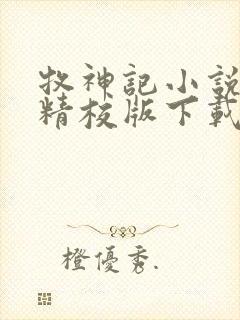 牧神記小說
精校版下載
橙優秀.